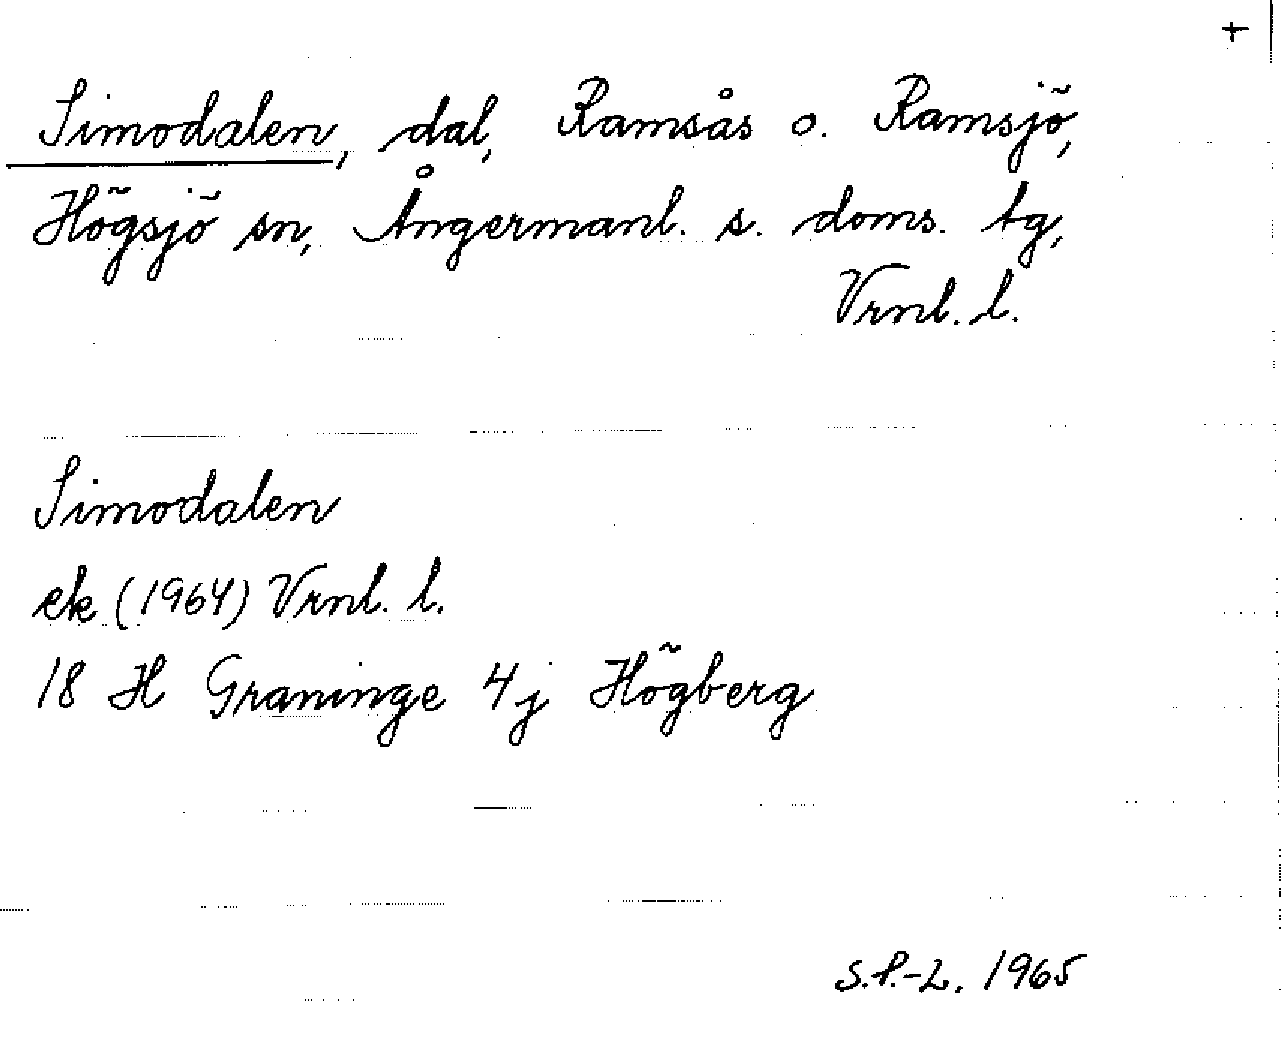 +
Simodalen, dal, Ramsås o. Ramsjö,
Högsjö sn, Ångermanl. s. doms. tg,
Vrnl. l.
Simodalen
ek (1964) Vrnl. l.
18 H Graninge 4j Högberg
S.P.-L. 1965